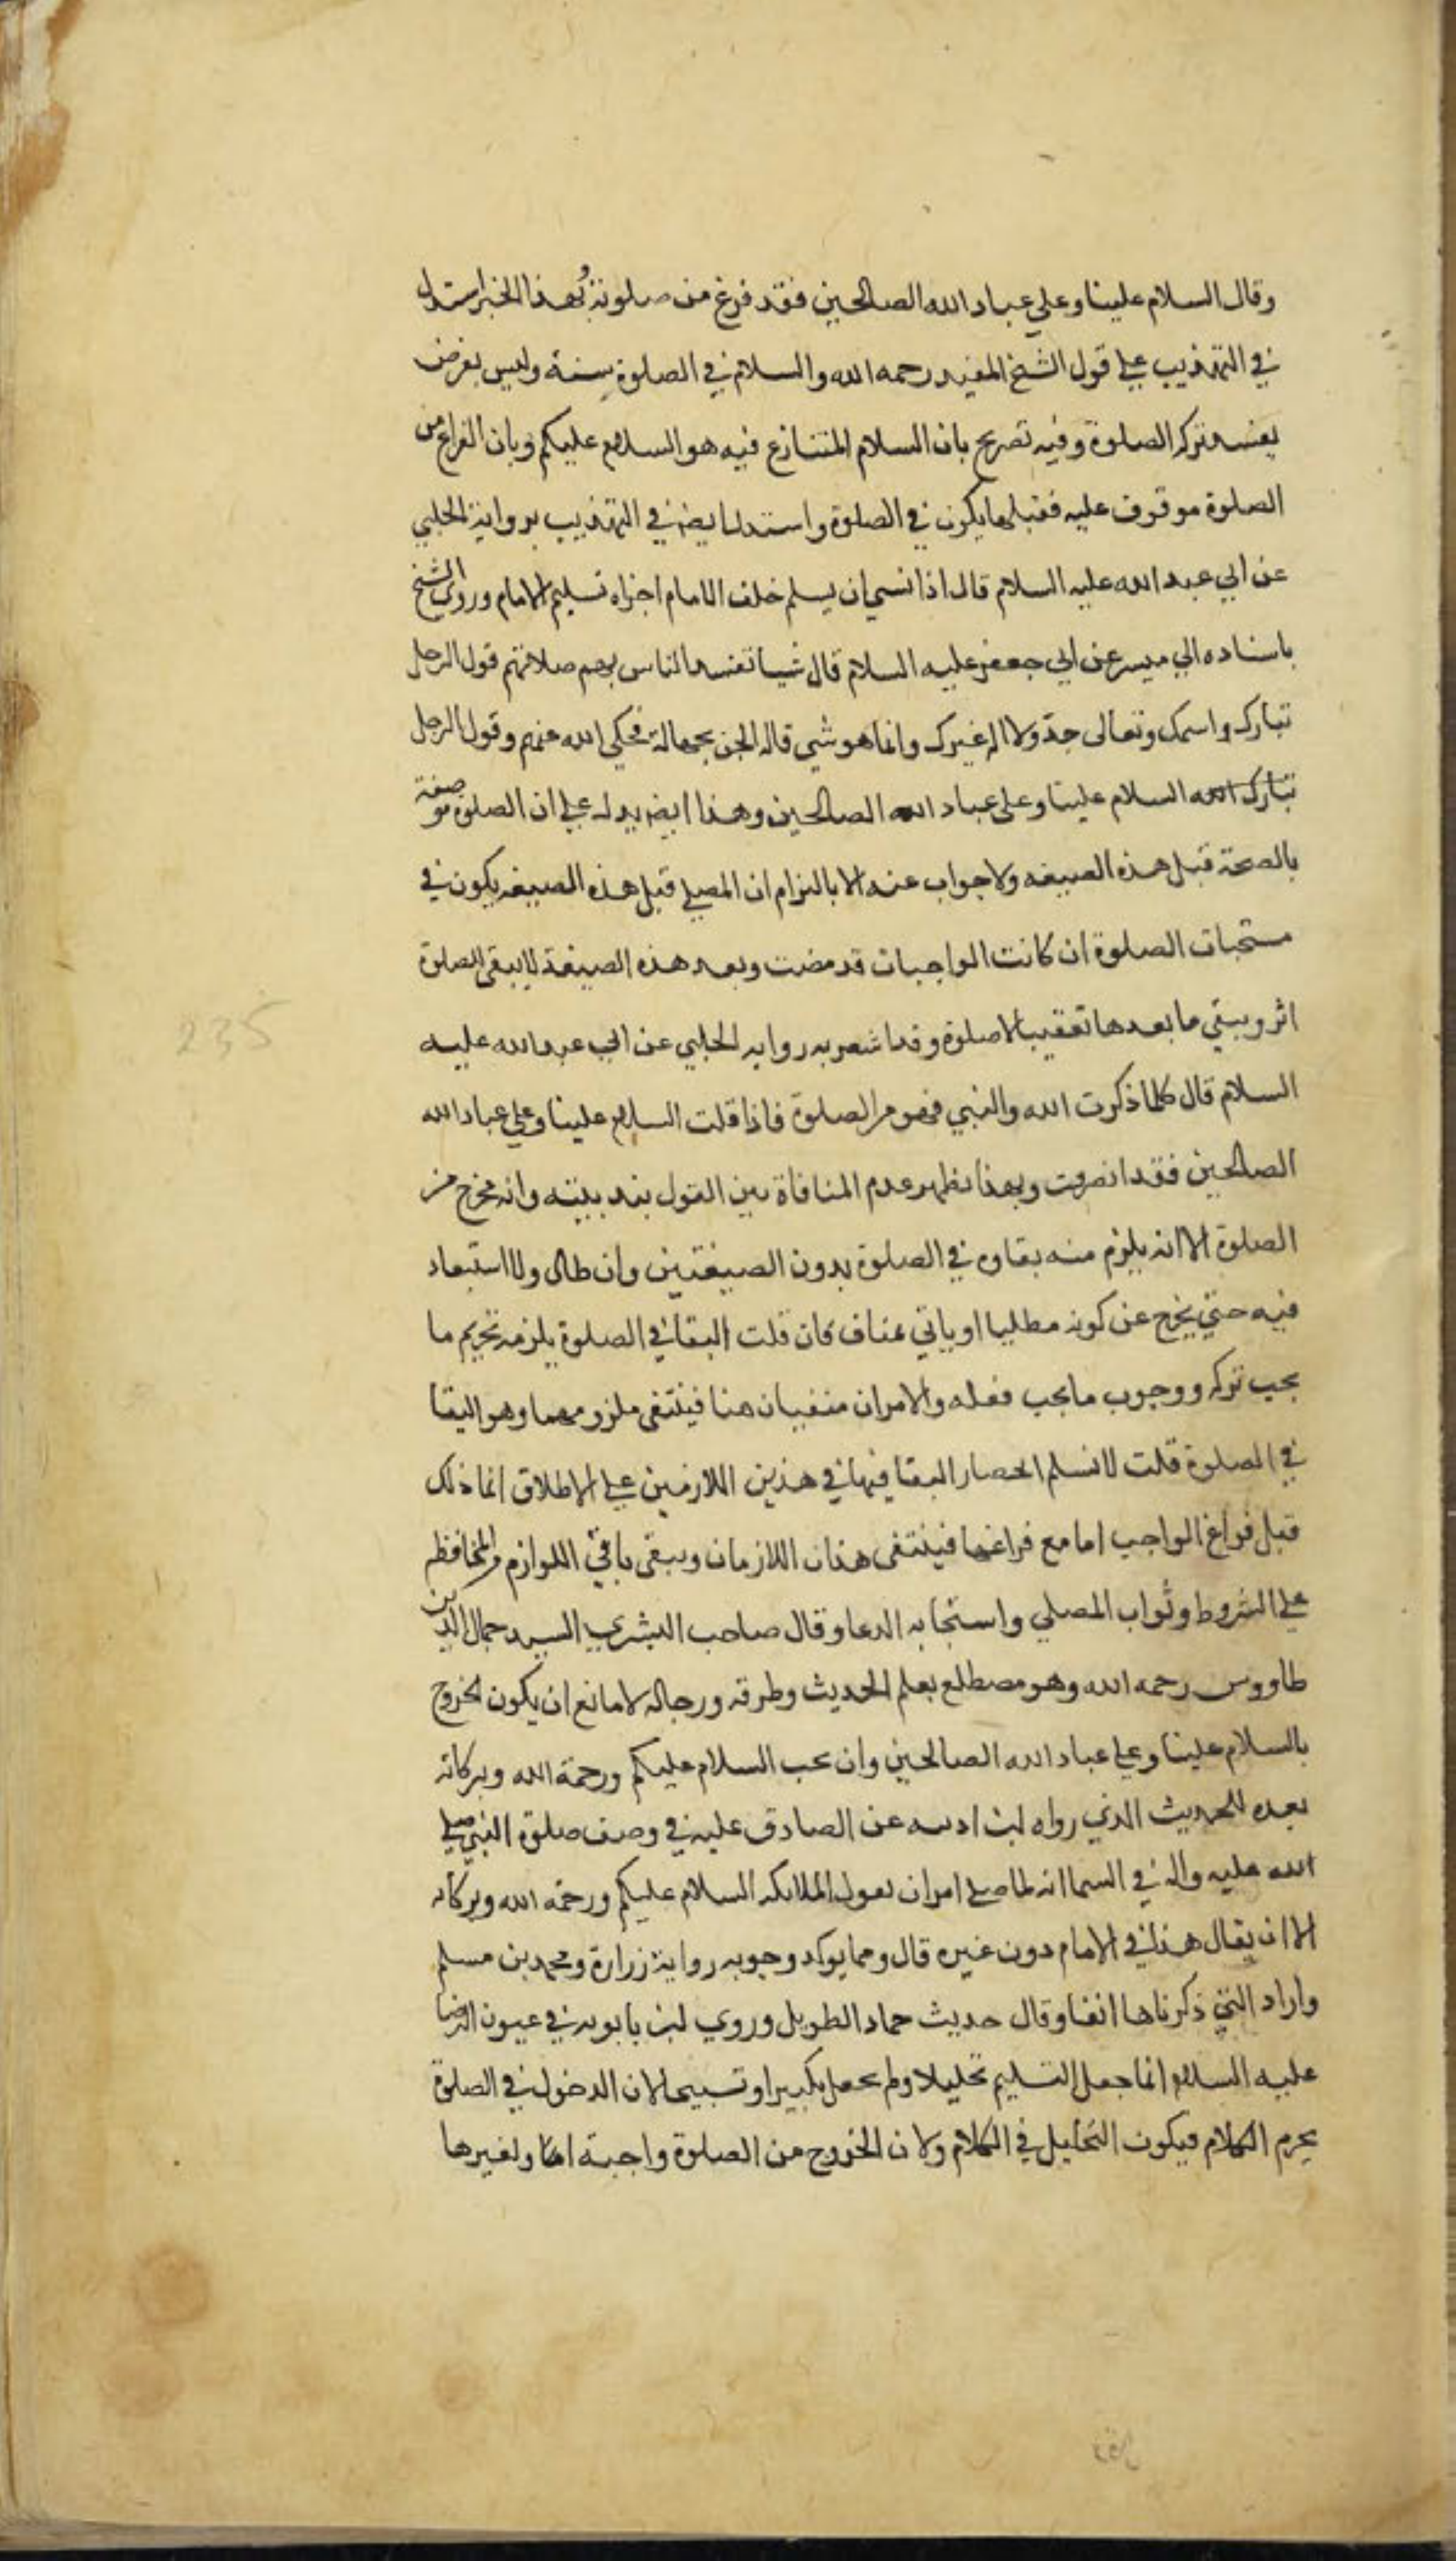 وقال السلام علينا وعلي عباد الله الصالحين فقد فرغ من صلوته بهذا الخبر استدل
في التهذيب علي قول الشيخ المفيد رحمه الله والسلام في الصلوة سنة وليس بفرض
يفسد تركه الصلوة وفيه تصريح بان السلام المتنازع فيه هو السلام عليكم وبان الفراغ من
الصلوة موقوف عليه فقبلها يكون في الصلوة واستدل ايضا في التهذيب برواية الحلبي
عن ابي عبد الله عليه السلام قال اذا نسي ان يسلم خلف الامام اجزاه تسليم الامام وروى الشيخ
باسناده الي ميسر عن ابي جعفر عليه السلام قال شيا تفسد الناس بهم صلاتهم قول الرجل
تبارك واسمك وتعالى جد ولا اله غيرك وانما هو شي قاله الجن بجهالة فحكى الله عنهم وقول الرجل
تبارك الله السلام علينا وعلى عباد الله الصالحين وهذا ايض يدل علي ان الصلوة موصفة
بالصحة قبل هذه الصيغه ولا جواب عنه الا بالتزام ان المصلي قبل هذه الصيغه يكون في
مستحبات الصلوة ان كانت الواجبات قد مضت وبعد هذه الصيغة لا يبقى للصلوة
اثر ويبقي ما بعدها تعقيبا لا صلوة وقد اشعر به روايه الحلبي عن ابي عبد الله عليه
السلام قال كلما ذكرت الله والنبي فهو من الصلوة فاذا قلت السلام علينا وعلي عباد الله
الصالحين فقد انصرفت وبهذا يظهر عدم المنافاة بين القول بندبيته وانه مخرج من
الصلوة الا انه يلزم منه بقاوه في الصلوة بدون الصيغتين وان طال ولا استبعاد
فيه حتي يخرج عن كونه مصليا او ياتي بمناف فان قلت البقا في الصلوة يلزمه تحريم ما
يجب تركه ووجوب ما يجب فعله والامران منفيان هنا فينتفى ملزومهما وهو البقا
في الصلوة قلت لا نسلم انحصار البقا فيها في هذين اللازمين علي الاطلاق انما ذلك
قبل فراغ الواجب اما مع فراغها فينتفى هذان اللازمان ويبقى باقي اللوازم والمحافظه
علي الشروط وثواب المصلي واستجابه الدعا وقال صاحب البشري السيد جمال الدين بن
طاووس رحمه الله وهو مصطلع بعلم الحديث وطرقه ورجاله لا مانع ان يكون الخروج
بالسلام علينا وعلي عباد الله الصالحين وان يجب السلام عليكم ورحمة الله وبركاته
بعده للحديث الذي رواه ابن اذينه عن الصادق عليه في وصف صلوة النبي صلى
الله عليه واله في السما انه لما صلي امر ان يقول الملايكه السلام عليكم ورحمة الله وبركاته
الا ان يقال هذا في الامام دون غيره قال ومما يوكد وجوبه رواية زرارة ومحمد بن مسلم
واراد التي ذكرناها انفا وقال حديث حماد الطويل وروي ابن بابويه في عيون الرضا
عليه السلام انما جعل التسليم تحليلا ولم يجعل تكبيرا وتسبيحا لان الدخول في الصلوة
يحرم الكلام فيكون التحليل في الكلام ولان الخروج من الصلوة واجبة اما ولغيرها
235